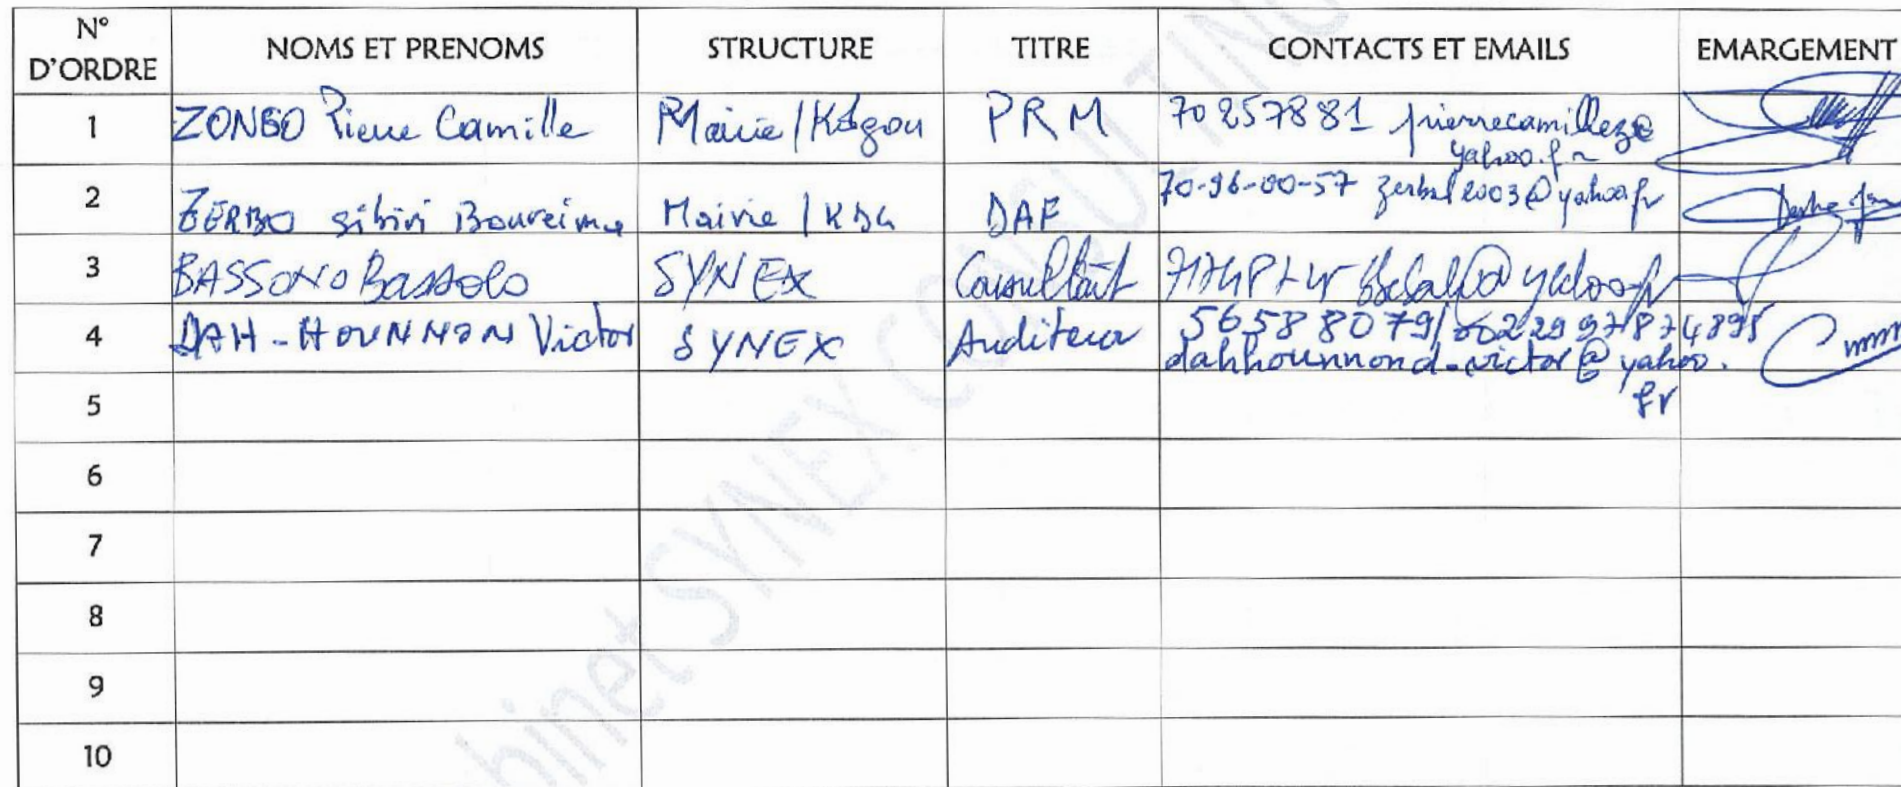 N° D'ORDRE NOMS ET PRENOMS STRUCTURE TITRE CONTACTS ET EMAILS EMARGEMENT
1 ZONGO Pierre Camille Mairie/Kdgou PRM 70257881 pierrecamillez@
yahoo.fr
2 ZERBO sibiri Boureima Mairie/KDG DAF 70-96-00-57 @yahoo.fr
3 BASSONO Bassolo SYNEX Consultant @yahoo.fr
4 DAH-HOUNNON Victor SYNEX Auditeur 56588079/0022997874895
dahhounnond_victor@yahoo.
fr
5
6
7
8
9
10
binet SYNEX CONSULTING